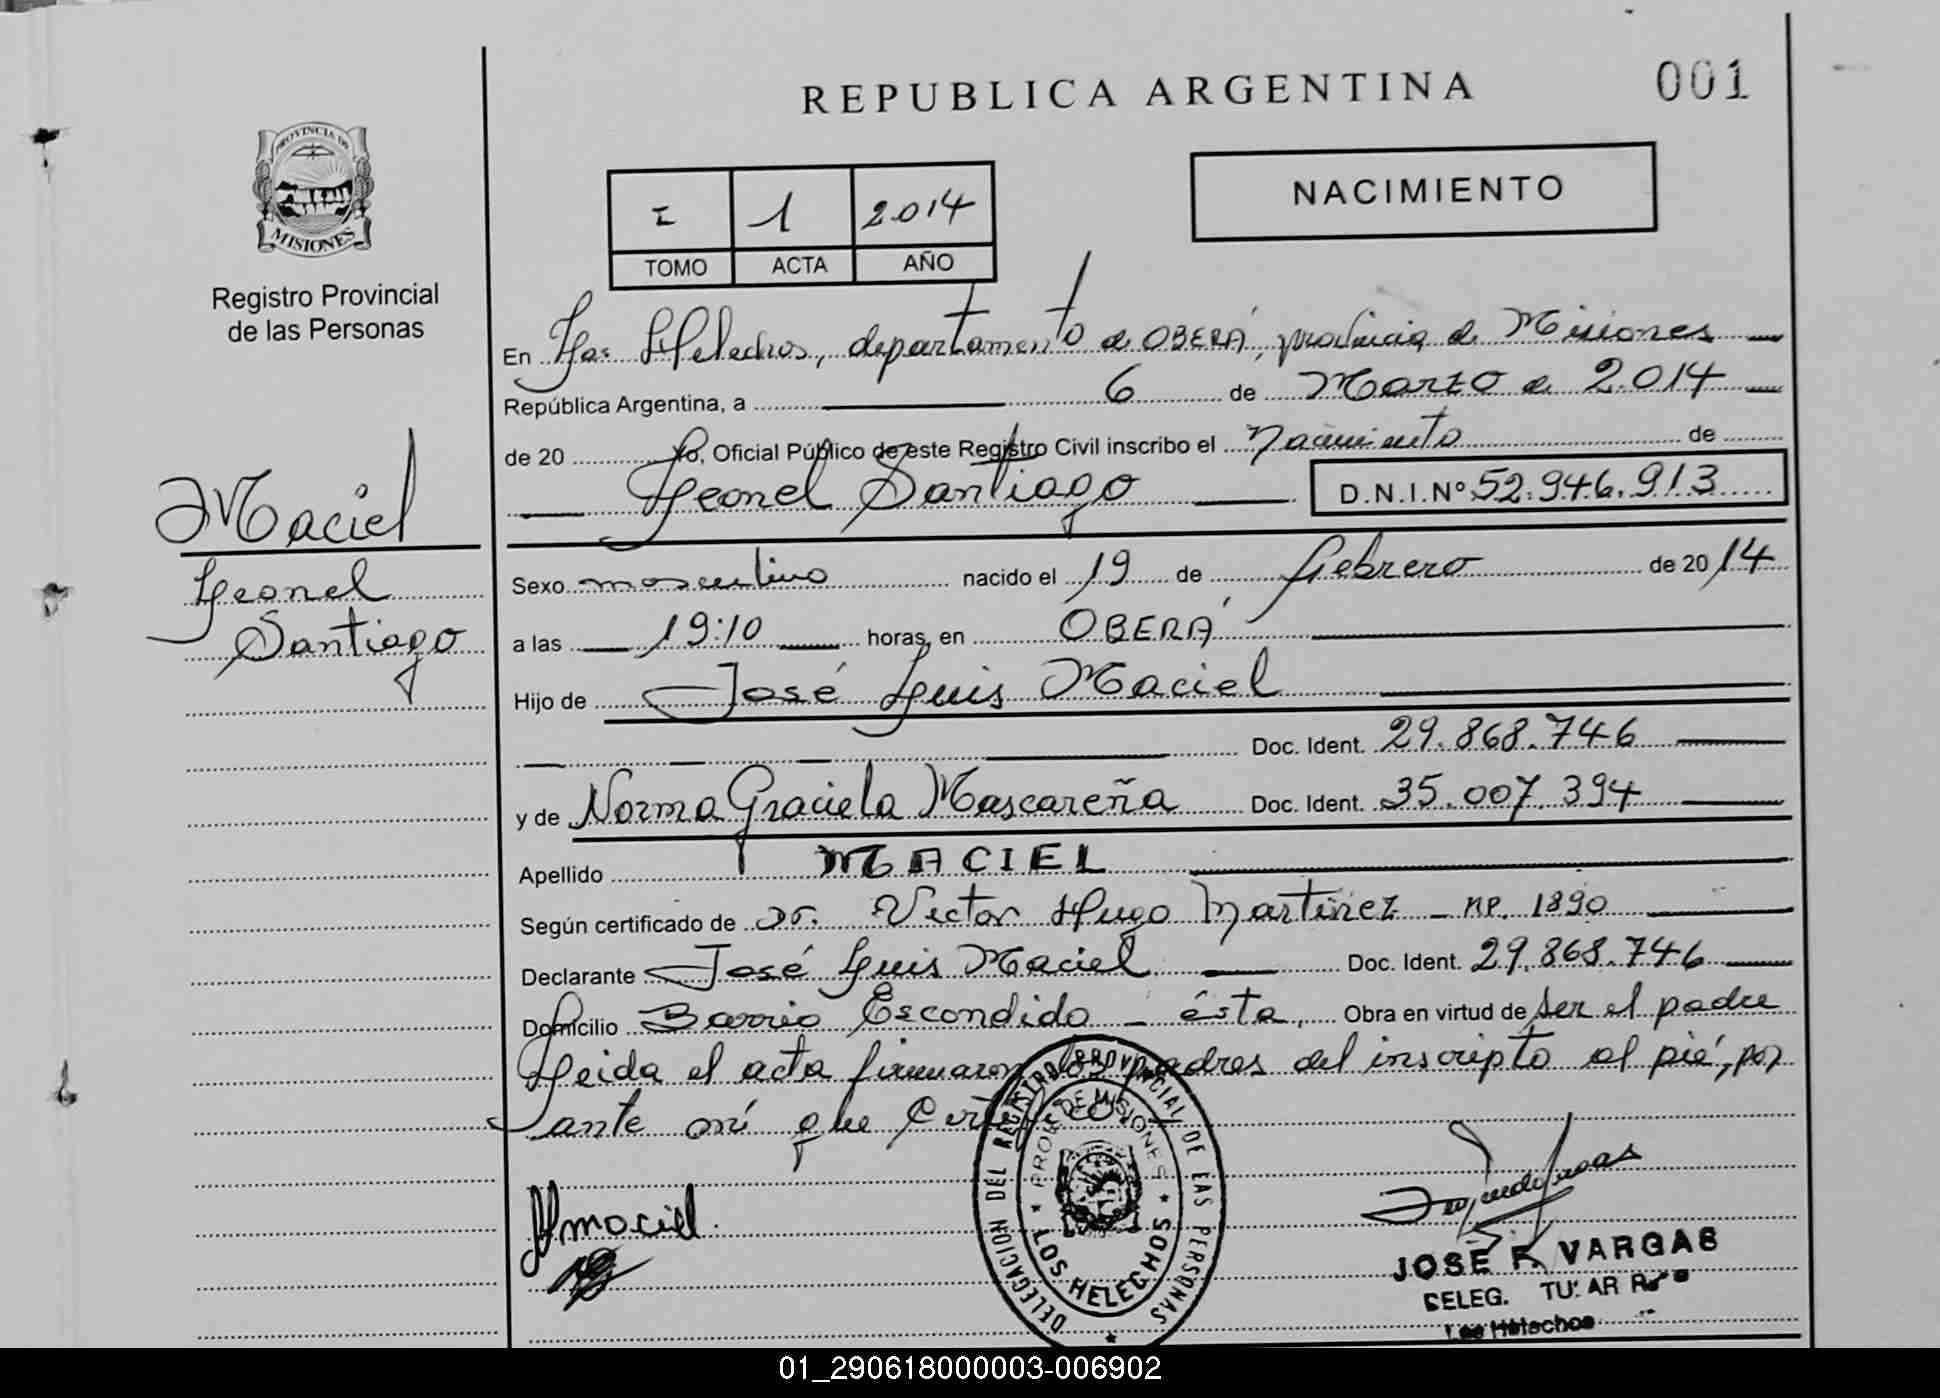 REPUBLICA ARGENTINA
001
PROVINCIA DE
MISIONES
Registro Provincial
de las Personas
I 1 2014
TOMO ACTA AÑO
NACIMIENTO
En Los Helechos, departamento de OBERÁ, provincia de Misiones
República Argentina, a 6 de Marzo de 2014
de 20 Yo, Oficial Público de este Registro Civil inscribo el Nacimiento de
Leonel Santiago D.N.I.Nº 52.946.913
Maciel
Leonel
Santiago
Sexo masculino nacido el 19 de febrero de 2014
a las 19:10 horas, en OBERÁ
Hijo de José Luis Maciel
Doc. Ident. 29.868.746
y de Norma Graciela Mascareña Doc. Ident. 35.007.394
Apellido MACIEL
Según certificado de Dr. Victor Hugo Martinez - MP. 1890
Declarante José Luis Maciel Doc. Ident. 29.868.746
Domicilio Barrio Escondido - ésta, Obra en virtud de ser el padre
Leida el acta firmaron los padres del inscripto al pié, por
ante mí que Certifico.
DELEGACION DEL REGISTRO PROVINCIAL DE LAS PERSONAS
PROV. DE MISIONES
LOS HELECHOS
Maciel
JOSE F. VARGAS
DELEG.
Los Helechos
01_290618000003-006902